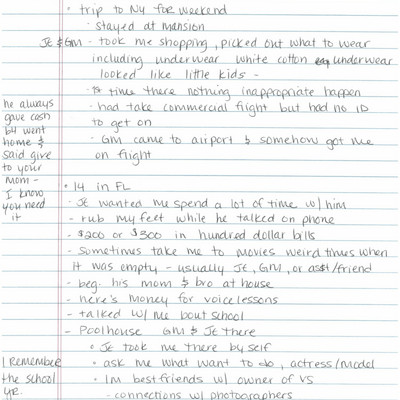 • trip to NY for weekend
- stayed at mansion
JE & GM - took me shopping, picked out what to wear
including underwear white cotton underwear
looked like little kids -
- time there nothing inappropriate happen
- had take commercial flight but had no ID
to get on
- GM came to airport & somehow got me
on flight
he always
gave cash
b4 went
home &
said give
to your
mom -
I know
you need
it
• 14 in FL
- JE wanted me spend a lot of time w/ him
- rub my feet while he talked on phone
- $200 or $300 in hundred dollar bills
- sometimes take me to movies weird times when
it was empty - usually JE, GM, or asst/friend
- beg. his mom & bro at house
- here's money for voice lessons
- talked w/ me bout school
- Poolhouse GM & JE there
• JE took me there by self
• ask me what want to do, actress/model
• Im best friends w/ owner of VS
- connections w/ photographers
I remember
the school
yr.